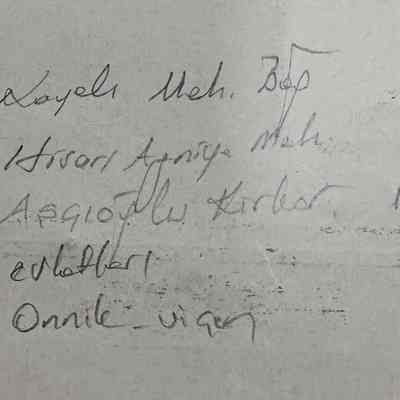 Kayalı Meh. Bağ
Hisarı Apniye Meh.
Aşçıoğlu Kirkor.
evlatları
Onnik - Vigen